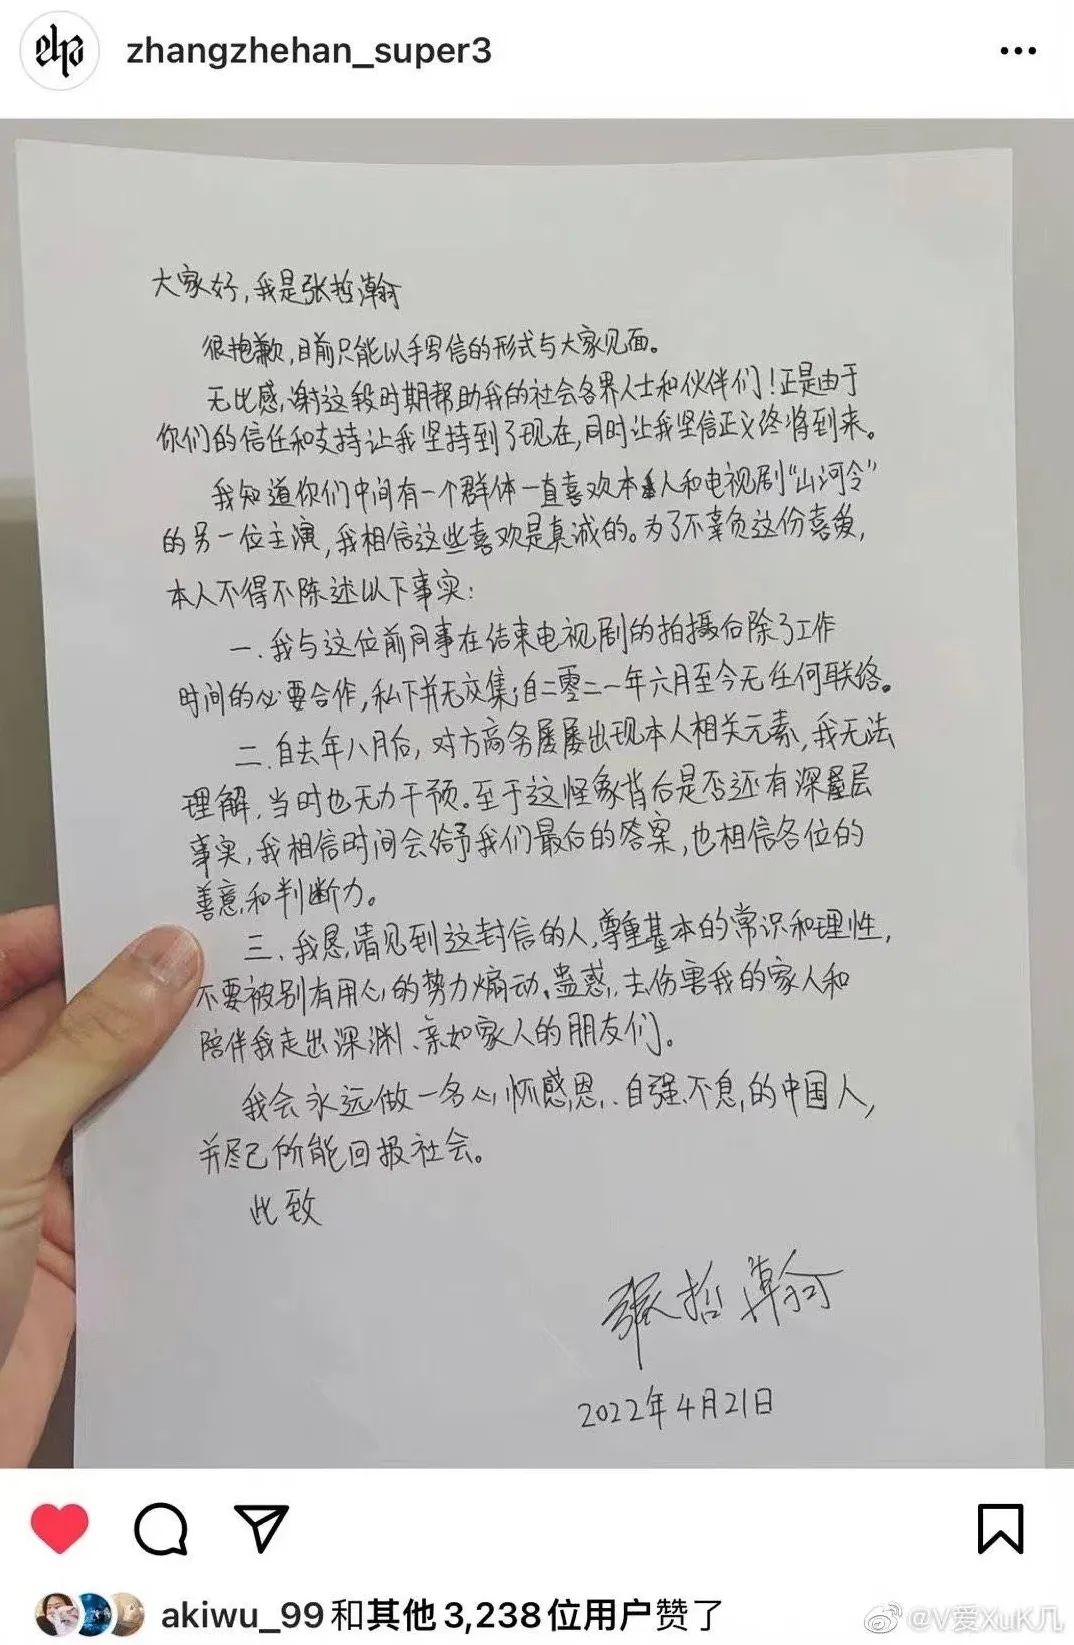 zhangzhehan_super3
大家好,我是张哲瀚
很抱歉,目前只能以手写信的形式与大家见面。
无比感谢这段时期帮助我的社会各界人士和伙伴们!正是由于
你们的信任和支持让我坚持到了现在,同时让我坚信正义终将到来。
我知道你们中间有一个群体一直喜欢本人和电视剧“山河令”
的另一位主演,我相信这些喜欢是真诚的。为了不辜负这份喜爱,
本人不得不陈述以下事实:
一.我与这位前同事在结束电视剧的拍摄后除了工作
时间的必要合作,私下并无交集;自二零二一年六月至今无任何联络。
二.自去年八月后,对方商务屡屡出现本人相关元素,我无法
理解,当时也无力干预。至于这怪象背后是否还有深层
事实,我相信时间会给予我们最后的答案,也相信各位的
善意和判断力。
三.我恳请见到这封信的人,尊重基本的常识和理性,
不要被别有用心的势力煽动、蛊惑,去伤害我的家人和
陪伴我走出深渊、亲如家人的朋友们。
我会永远做一名心怀感恩、自强不息的中国人,
并尽己所能回报社会。
此致
张哲瀚
2022年4月21日
akiwu_99和其他 3,238 位用户赞了
@V爱XuK几